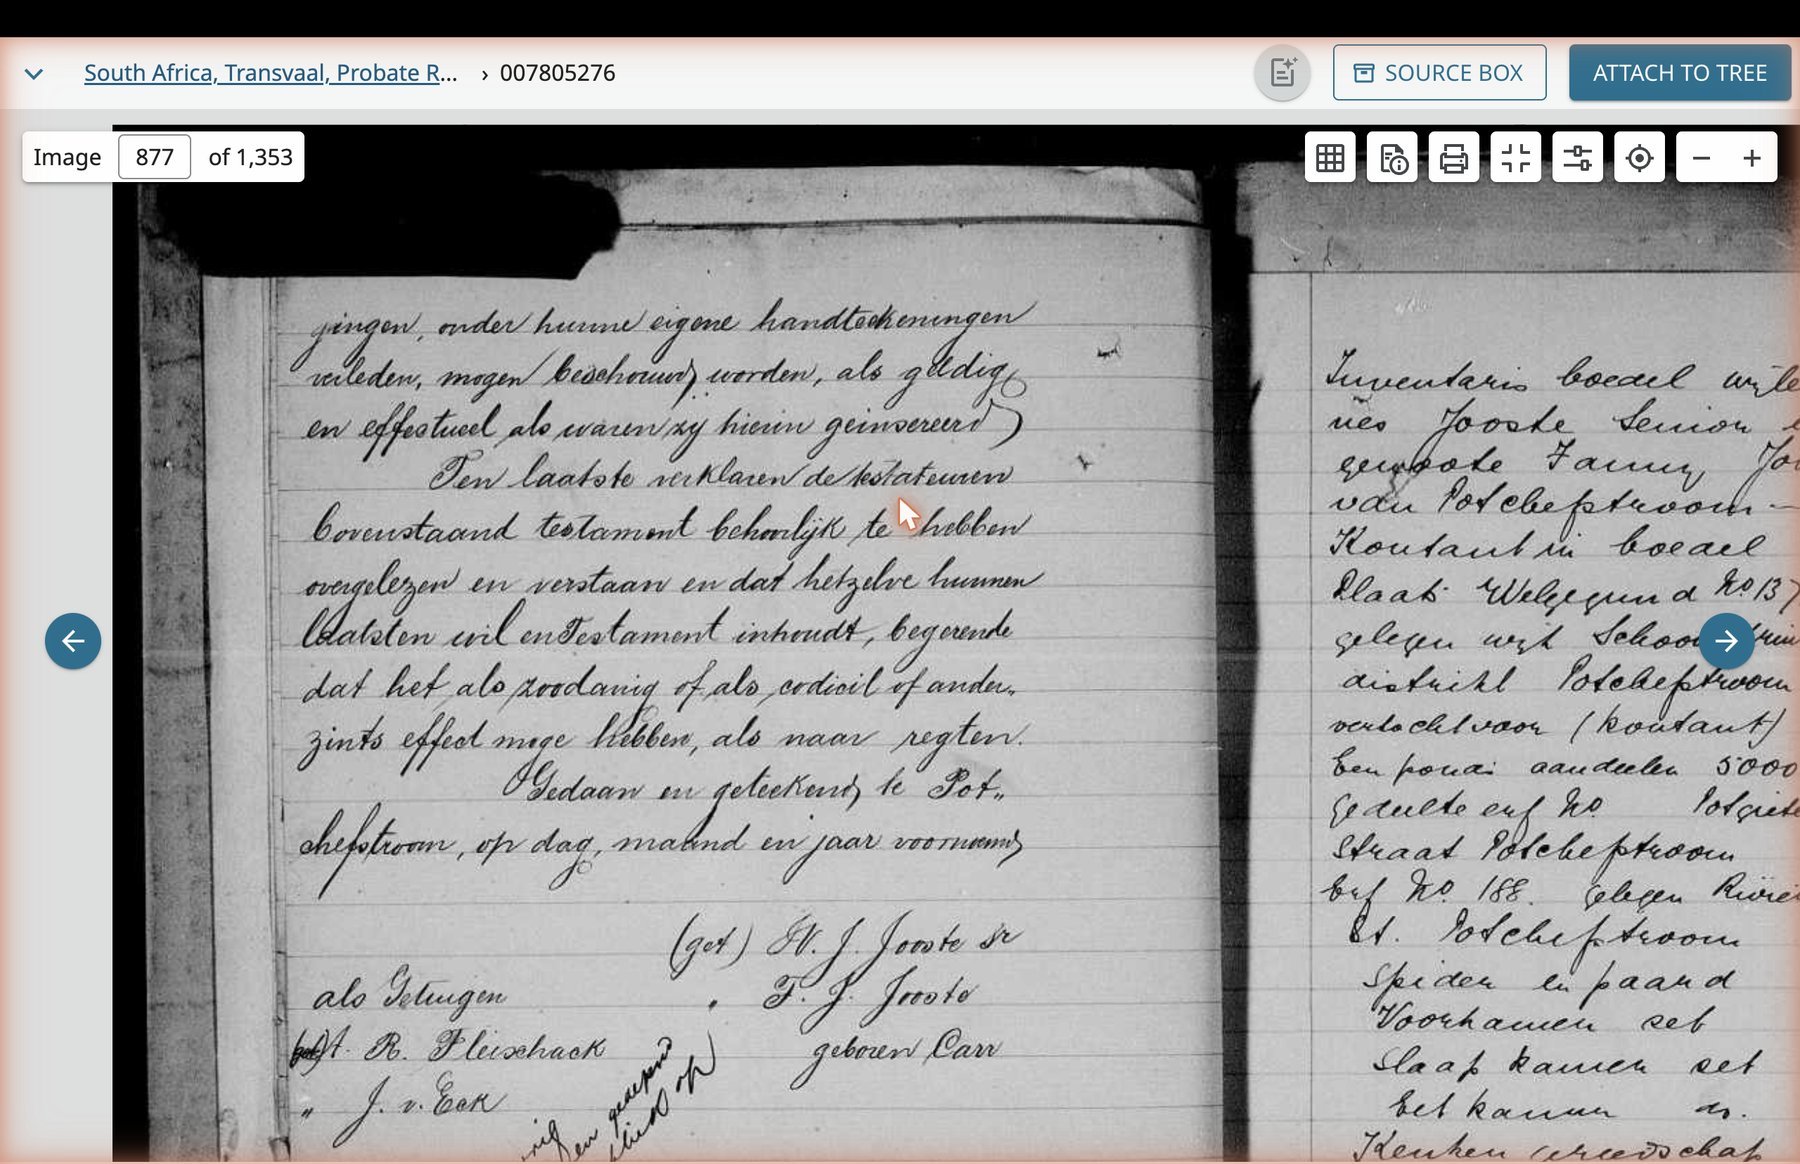 South Africa, Transvaal, Probate R... › 007805276
SOURCE BOX
ATTACH TO TREE
Image 877 of 1,353
gingen, onder hunne eigene handteekeningen
verleden, mogen beschouwd worden, als geldig
en effectueel als waren zy hierin geinsereerd
Ten laatste verklaren de testateuren
bovenstaand testament behoorlijk te hebben
overgelezen en verstaan en dat hetzelve hunnen
laatsten wil en Testament inhoudt, begerende
dat het als zoodanig of als codicil of ander„
zints effect moge hebben, als naar regten.
Gedaan en geteekend te Pot„
chefstroom, op dag, maand en jaar voornoemd
(get) N. J. Jooste Sr
als Getuigen " F. J. Jooste
t. R. Fleischack geboren Carr
" J. v. Eck
op
Inventaris boedel
nes Jooste Senior
genoote Fanny
van Potchefstroom
Kontant in boedel
Plaats Welgegund No 13
gelegen wijk
distrikt Potchefstroom
verkocht voor (kontant)
Een pond aandeelen 5000
Gedeelte erf No
Straat Potchefstroom
Erf No. 188. Gelegen
St. Potchefstroom
Spider en paard
Voorkamer set
Slaap kamer set
Eet kamer do.
Keuken